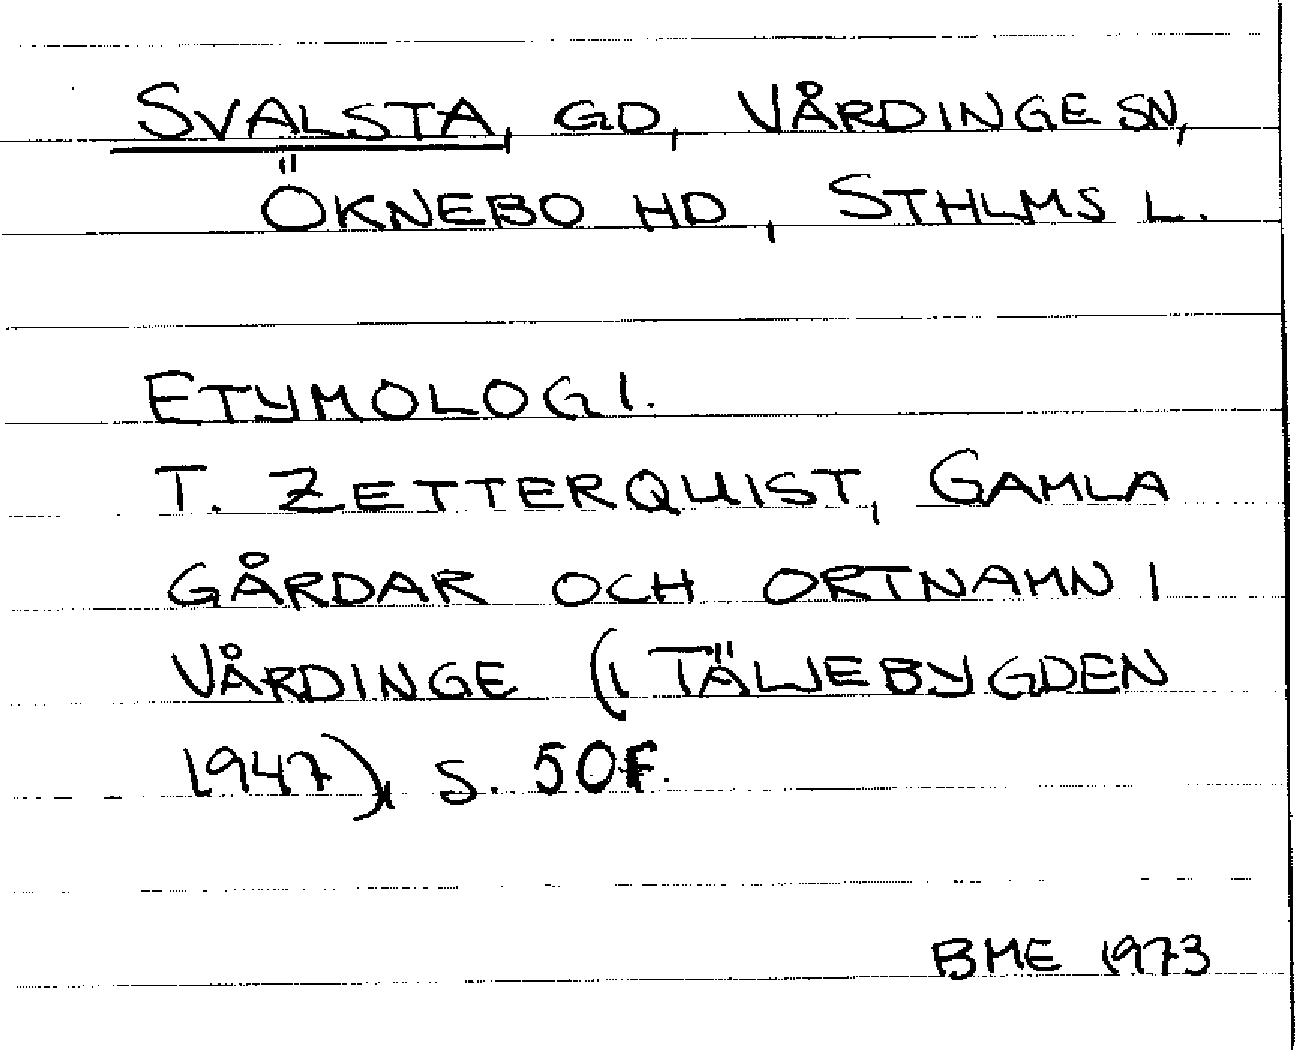 SVALSTA, GD, VÅRDINGE SN,
ÖKNEBO HD, STHLMS L.
ETYMOLOGI.
T. ZETTERQUIST, GAMLA
GÅRDAR OCH ORTNAMN I
VÅRDINGE (I TÄLJEBYGDEN
1947), S. 50F.
BME 1973